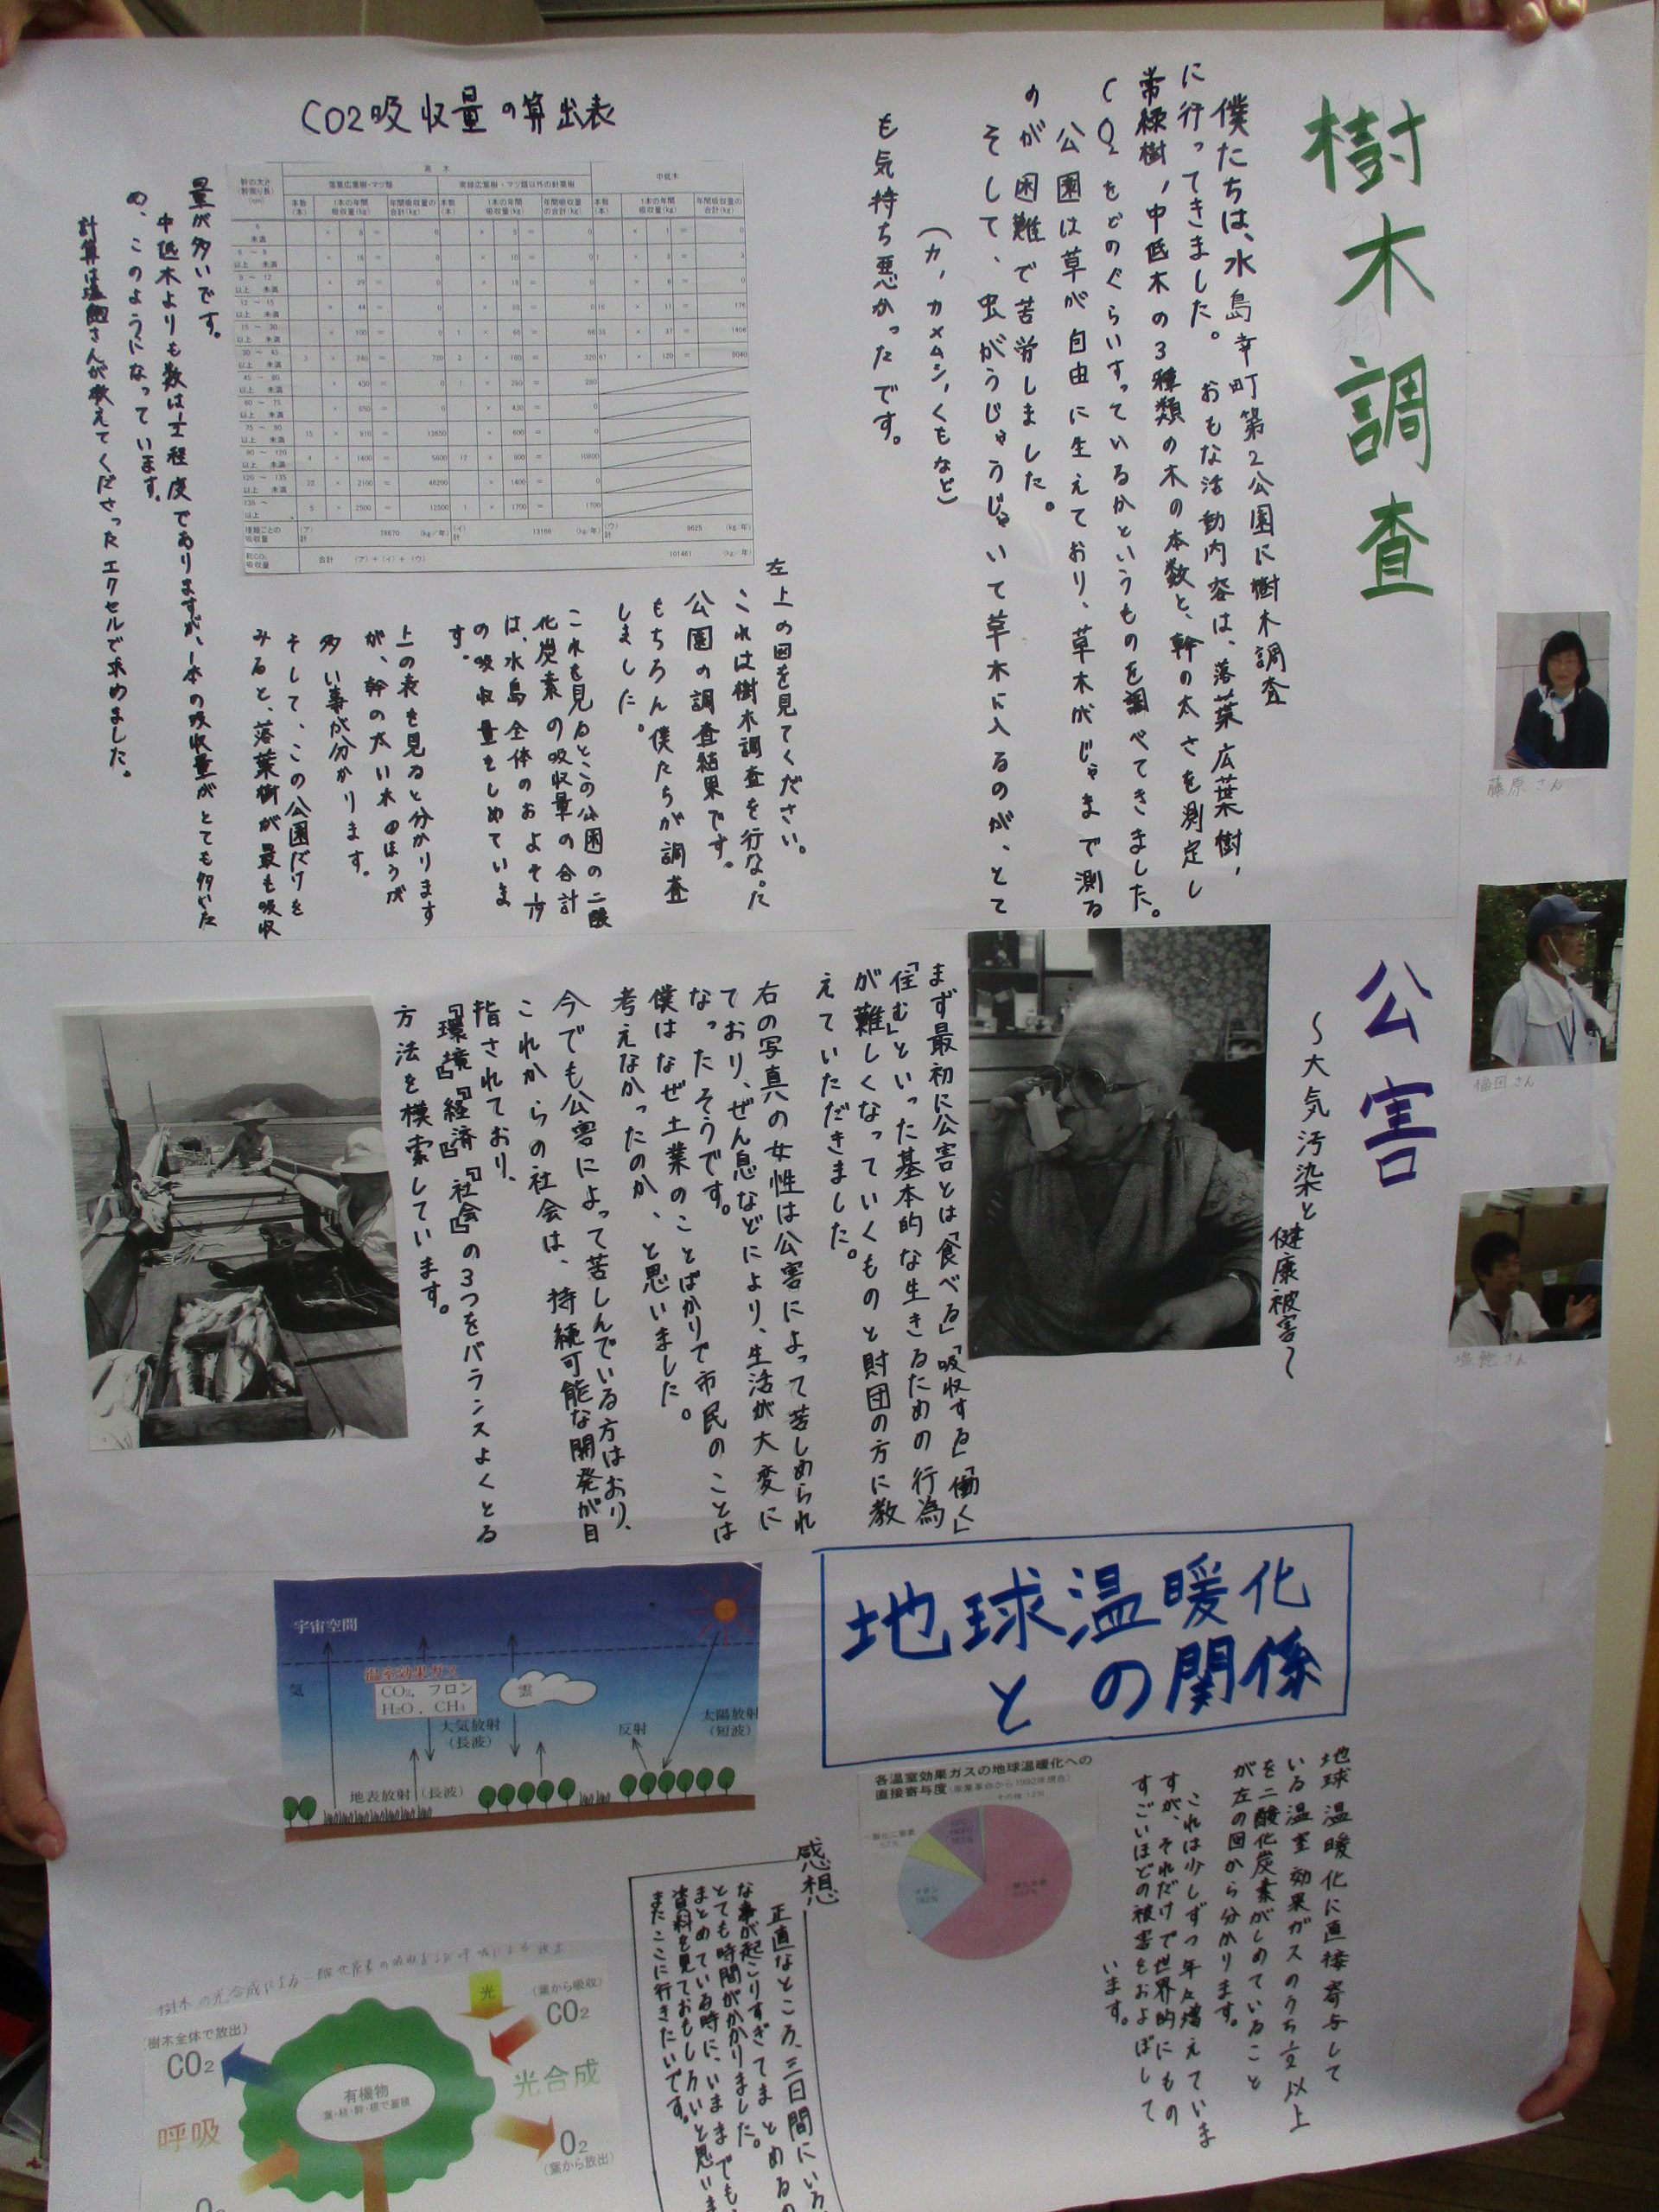 樹木調査
僕たちは、水島幸町第2公園に樹木調査
に行ってきました。おもな活動内容は、落葉広葉樹、
常緑樹、中低木の3種類の木の本数と、幹の太さを測定し
CO2をどのぐらいすっているかというものを調べてきました。
公園は草が自由に生えており、草木がじゃまで測る
のが困難で苦労しました。
そして、虫がうじゃうじゃいて草木に入るのが、とて
も気持ち悪かったです。
(カ、カメムシ、くもなど)
CO2吸収量の算出表
幹の太さ
高木
中低木
落葉広葉樹・マツ類
常緑広葉樹・マツ類以外の針葉樹
本数(本) 1本の年間吸収量(kg) 年間吸収量の合計(kg) 本数(本) 1本の年間吸収量(kg) 年間吸収量の合計(kg) 本数(本) 1本の年間吸収量(kg) 年間吸収量の合計(kg)
種類ごとの吸収量
総CO2吸収量 合計 (ア)+(イ)+(ウ) 101461 (kg/年)
左上の図を見てください。
これは樹木調査を行なった
公園の調査結果です。
もちろん僕たちが調査
しました。
これを見るとこの公園の二酸
化炭素の吸収量の合計
は、水島全体のおよそ
の吸収量をしめていま
す。
上の表を見ると分かります
が、幹の太い木のほうが
多い事が分かります。
そして、この公園だけを
みると、落葉樹が最も吸収
量が多いです。
中低木よりも数は 程度でありますが、1本の吸収量がとても多いた
め、このようになっています。
計算は塩飽さんが教えてくださったエクセルで求めました。
藤原さん
福田さん
塩飽さん
公害
～大気汚染と健康被害～
まず最初に公害とは「食べる」「吸収する」「働く」
「住む」といった基本的な生きるための行為
が難しくなっていくものと財団の方に教
えていただきました。
右の写真の女性は公害によって苦しめられ
ており、ぜん息などにより、生活が大変に
なったそうです。
僕はなぜ土業のことばかりで市民のことは
考えなかったのか、と思いました。
今でも公害によって苦しんでいる方はおり、
これからの社会は、持続可能な開発が目
指されており、
『環境』『経済』『社会』の3つをバランスよくとる
方法を模索しています。
地球温暖化
との関係
地球温暖化に直接寄与して
いる温室効果ガスのうち 以上
を二酸化炭素がしめていること
が左の図から分かります。
これは少しずつ年々増えていま
すが、それだけで世界的にもの
すごいほどの被害をおよぼして
います。
各温室効果ガスの地球温暖化への
直接寄与度(産業革命から1992年現在)
メタン
宇宙空間
気
温室効果ガス
CO2, フロン
H2O, CH4
雲
大気放射
(長波)
反射
太陽放射
(短波)
地表放射(長波)
感想
正直なところ、三日間にいろ
な事が起こりすぎてまとめるの
とても時間がかかりました。
まとめている時に、いままでも
資料を見ておもしろいと思いま
またここに行きたいです。
樹木の光合成による二酸化炭素の吸収および呼吸による放出
光
(葉から吸収)
CO2
光合成
O2
(葉から放出)
(樹木全体で放出)
CO2
呼吸
O2
有機物
葉・枝・幹・根で蓄積